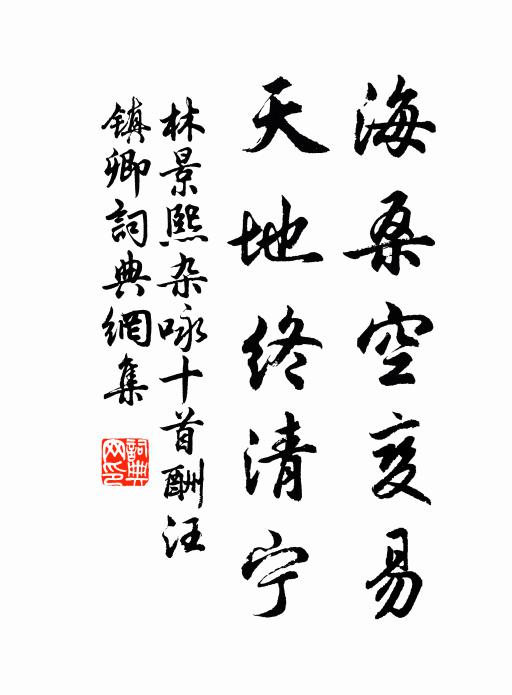 海桑空变易
天地终清宁
林景熙杂咏十首酬汪
镇卿詞典網集
詞典網印